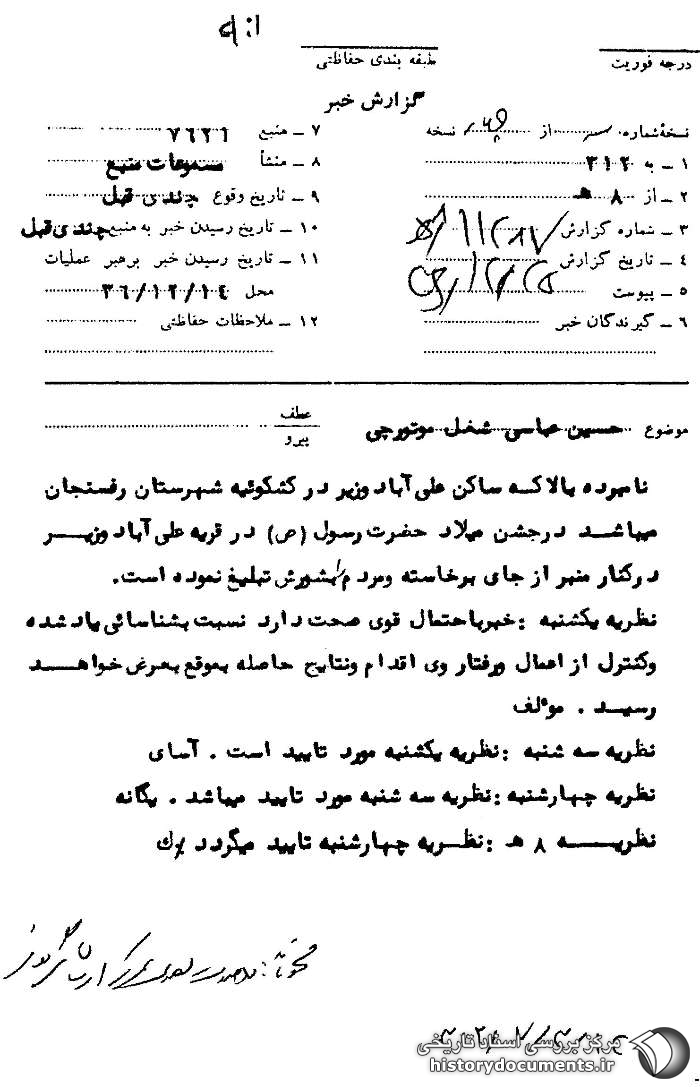 درجه فوریت
طبقه بندی حفاظتی
گزارش خبر
نسخه شماره از نسخه
۱ ــ به ۳۱۲
۲ ــ از ۸ هـ
۳ ــ شماره گزارش
۴ ــ تاریخ گزارش
۵ ــ پیوست
۶ ــ گیرندگان خبر
۷ ــ منبع ۷۶۲۱
۸ ــ منشأ مسموعات منبع
۹ ــ تاریخ وقوع چندی قبل
۱۰ ــ تاریخ رسیدن خبر به منبع چندی قبل
۱۱ ــ تاریخ رسیدن خبر برهبر عملیات
محل ۳۶/۱۲/۱۴
۱۲ ــ ملاحظات حفاظتی
موضوع حسین عباسی شغل موتورچی
عطف
پیرو
نامبرده بالا که ساکن علی آباد وزیر در کشکوئیه شهرستان رفسنجان
میباشد درجشن میلاد حضرت رسول (ص) در قریه علی آباد وزیر
درکنار منبر از جای برخاسته ومردم را بشورش تبلیغ نموده است.
نظریه یکشنبه : خبر باحتمال قوی صحت دارد نسبت بشناسائی یاد شده
وکنترل از اعمال ورفتار وی اقدام ونتایج حاصله بموقع بعرض خواهد
رسید . مؤلف
نظریه سه شنبه : نظریه یکشنبه مورد تایید است . آسای
نظریه چهارشنبه : نظریه سه شنبه مورد تایید میباشد . یگانه
نظریه ۸ هـ : نظریه چهارشنبه تایید میگردد
مرکز بررسی اسناد تاریخی
historydocuments.ir